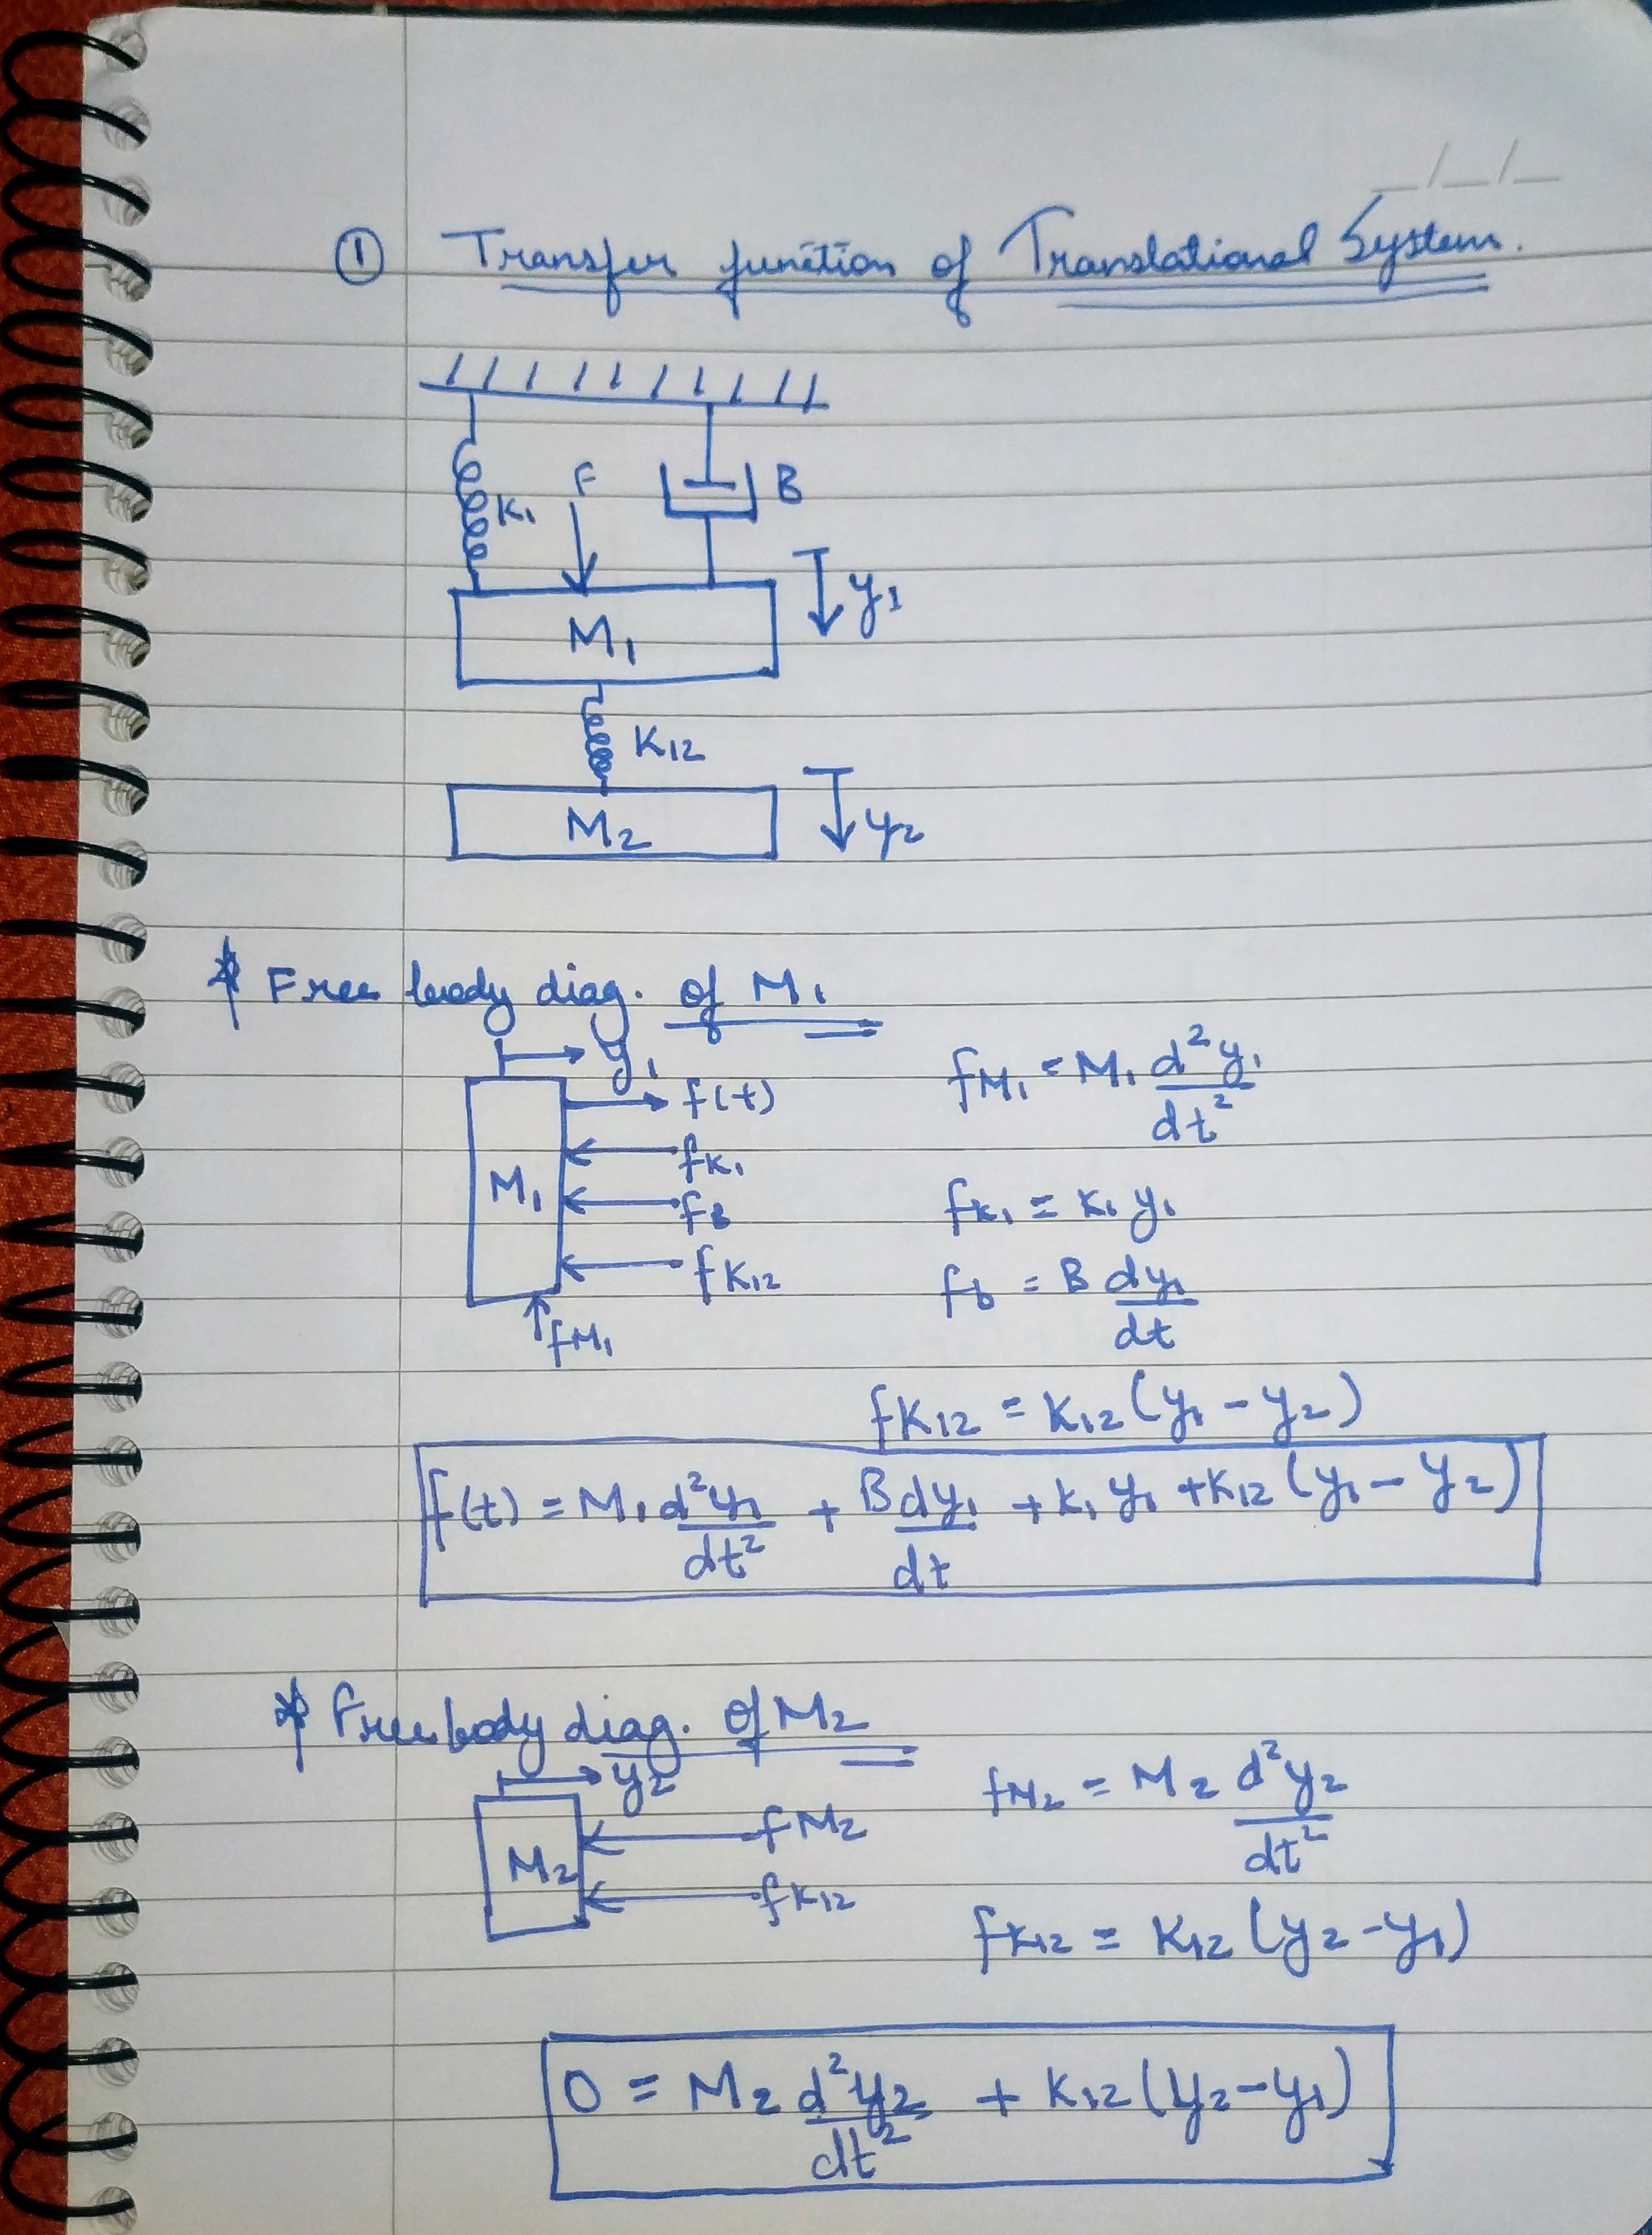 ① Transfer function of Translational System.
K₁
F
B
M₁
y₁
K₁₂
M₂
y₂
* Free body diag. of M₁
y₁
f(t)
fK₁
M₁
fB
fK₁₂
fM₁
fM₁ = M₁ d²y₁/dt²
fK₁ = K₁ y₁
fb = B dy₁/dt
fK₁₂ = K₁₂ (y₁ - y₂)
f(t) = M₁ d²y₁/dt² + B dy₁/dt + K₁ y₁ + K₁₂ (y₁ - y₂)
* Free body diag. of M₂
y₂
M₂
fM₂
fK₁₂
fM₂ = M₂ d²y₂/dt²
fK₁₂ = K₁₂ (y₂ - y₁)
0 = M₂ d²y₂/dt² + K₁₂ (y₂ - y₁)